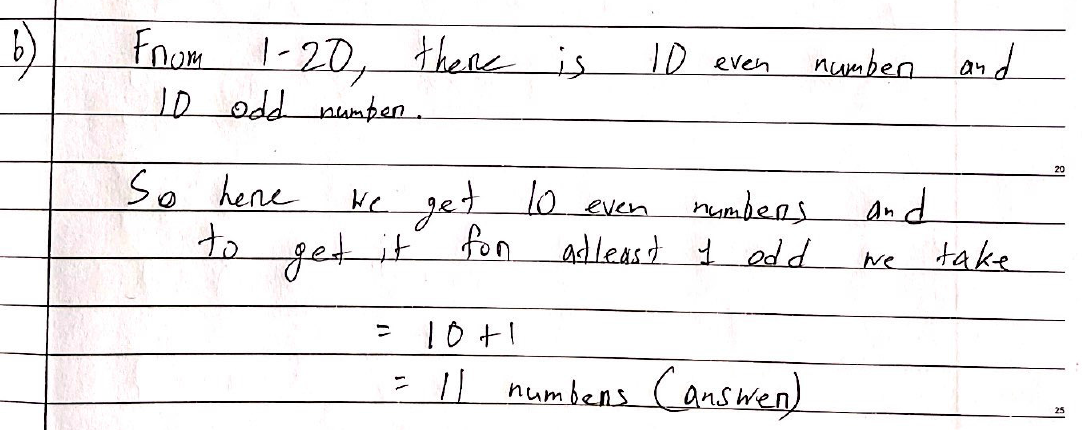 b) From 1-20, there is 10 even number and
10 odd number.
20
So here we get 10 even numbers and
to get it for atleast 1 odd we take
= 10+1
= 11 numbers (answer)
25